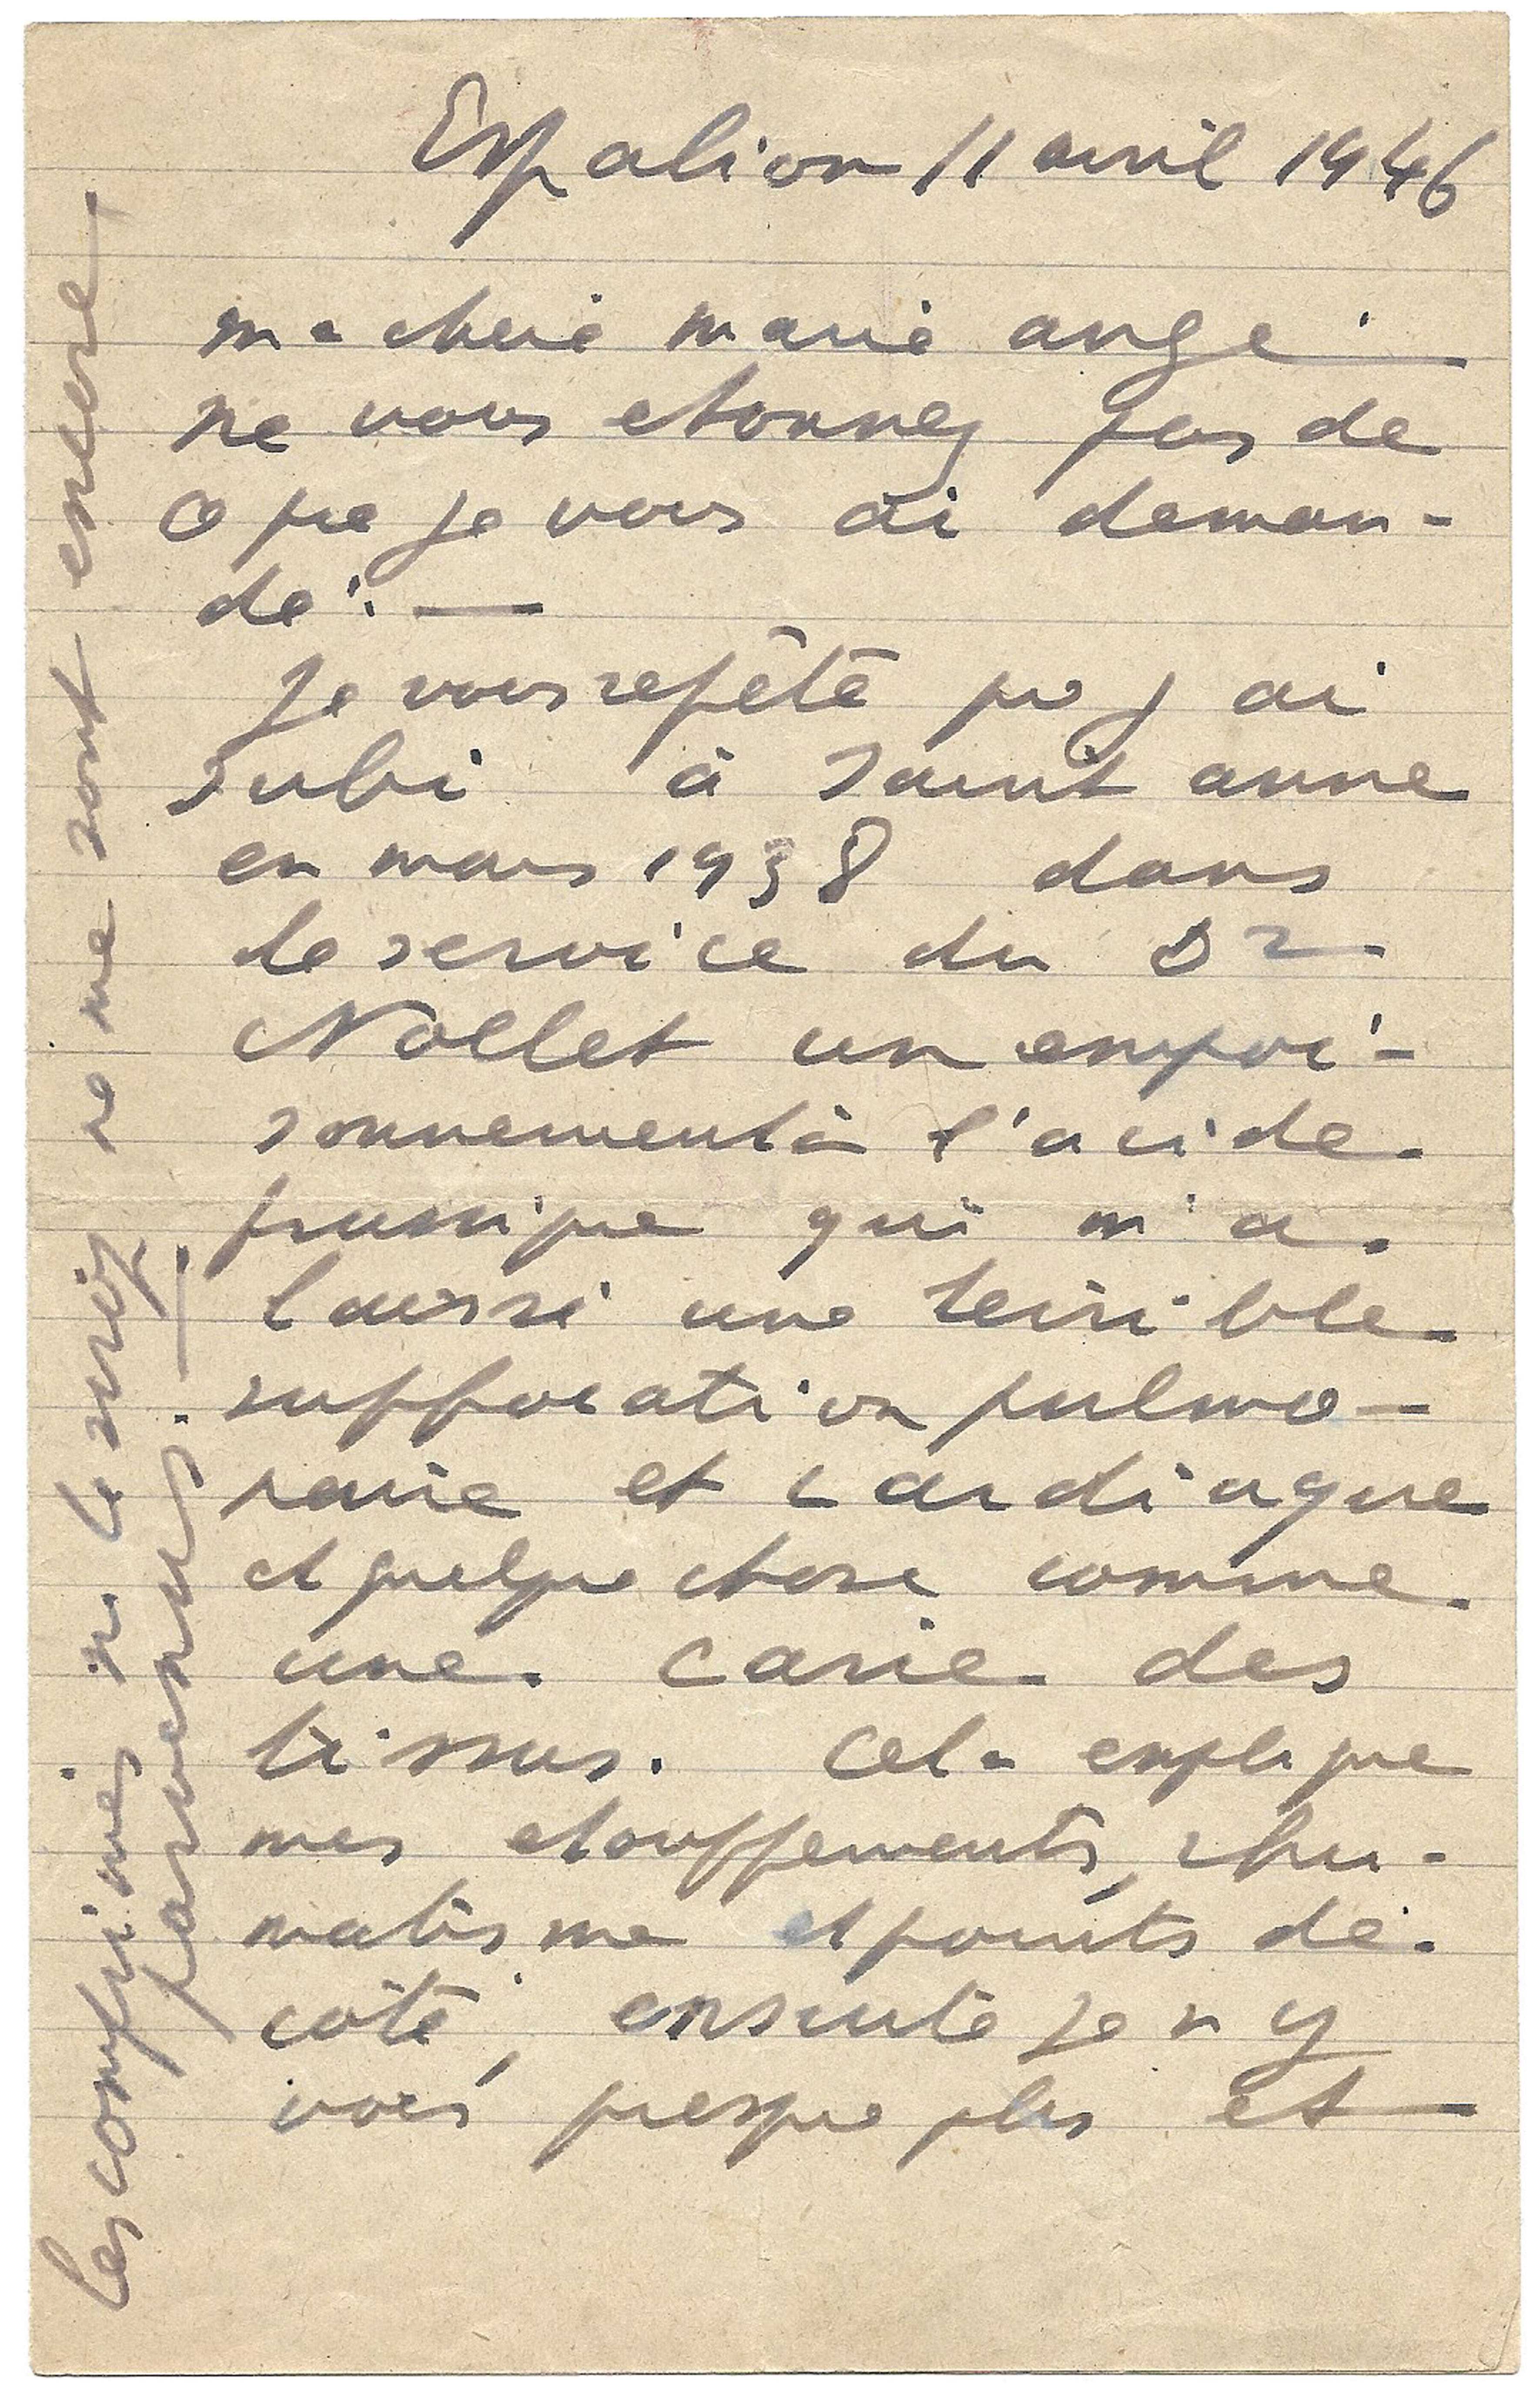 Espalion 11 avril 1946
ma cherie marie ange
ne vous etonnez pas de
ce que je vous ai deman-
dé. —
Je vous repète que j ai
subi à saint anne
en mars 1938 dans
le service du Dr
Nollet un empoi-
sonnement à l'acide
prussique qui m'a
laissé une terrible
suffocation pulmo-
naire et cardiaque
et quelque chose comme
une carie des
tissus. Cela explique
mes etouffements, rhu-
matisme et points de
coté, ensuite je n y
vois presque plus et
Les comprimés
ne me sont encore
parvenus. —